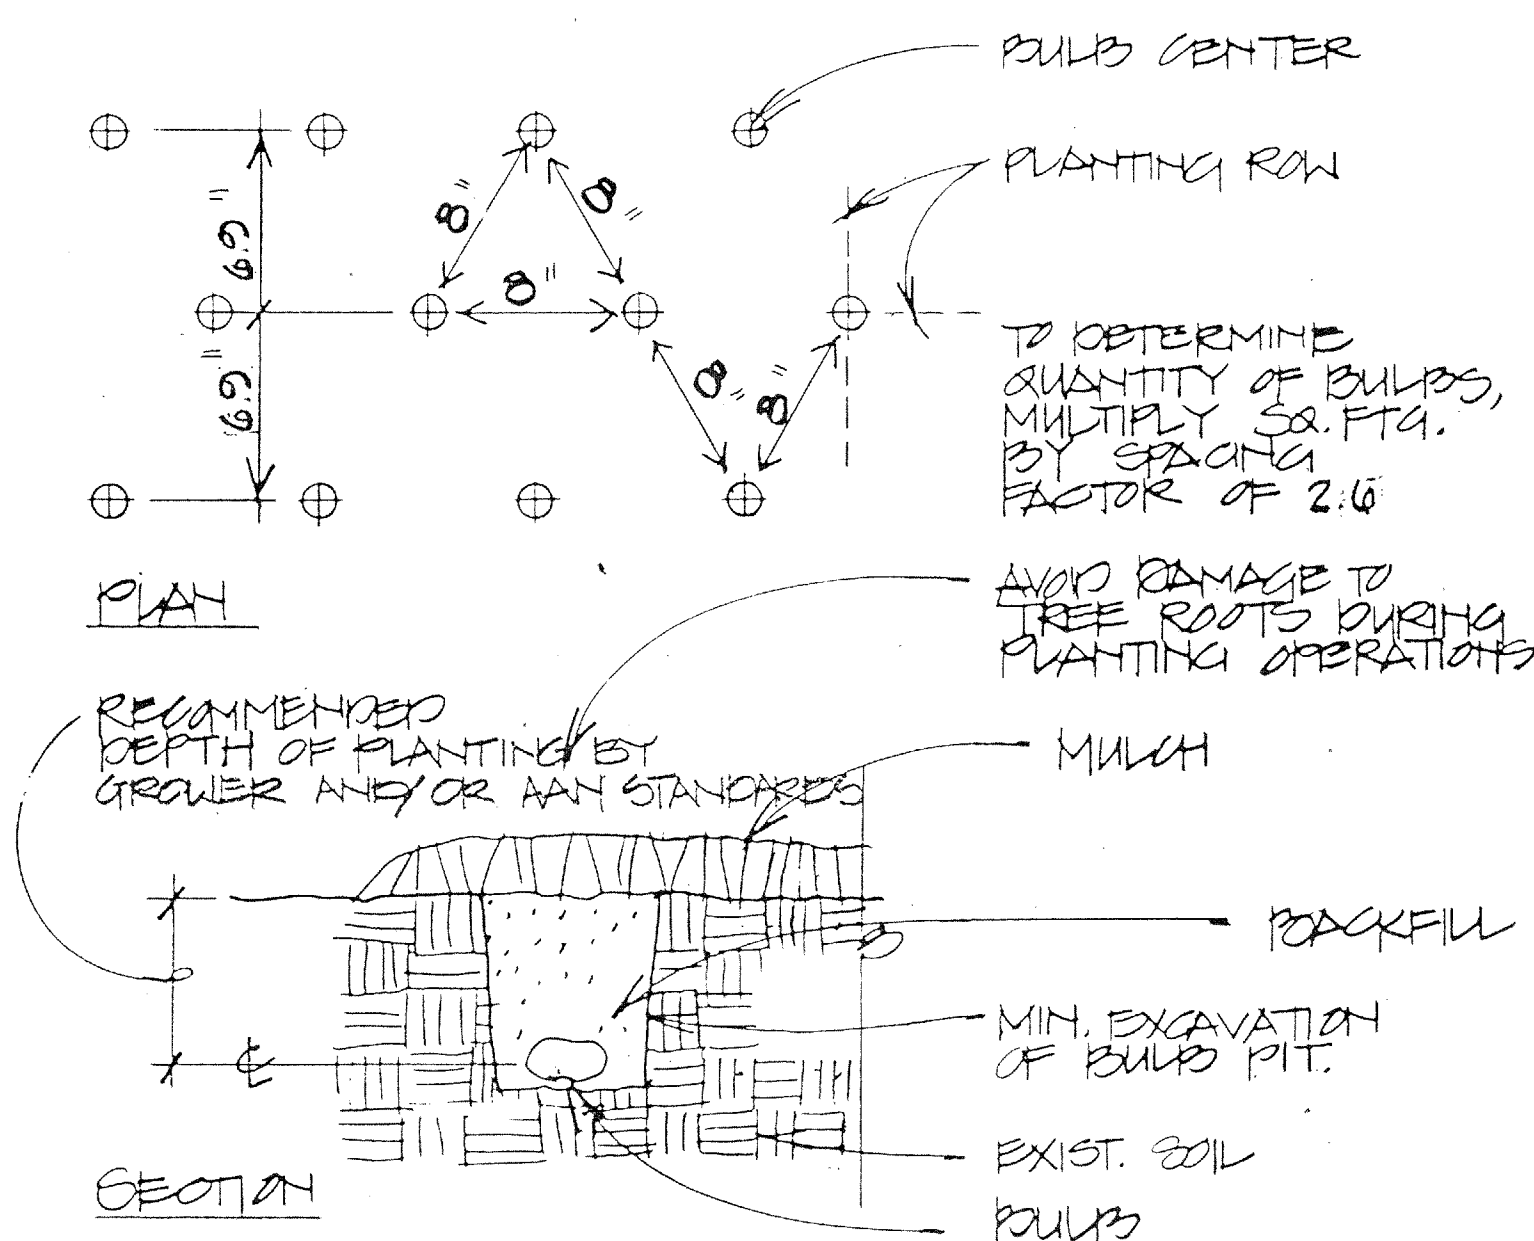 BULB CENTER
PLANTING ROW
8"
8"
8"
8"
8"
6.9"
6.9"
TO DETERMINE
QUANTITY OF BULBS,
MULTIPLY SQ. FTG.
BY SPACING
FACTOR OF 2.6
PLAN
AVOID DAMAGE TO
TREE ROOTS DURING
PLANTING OPERATIONS
RECOMMENDED
DEPTH OF PLANTING BY
GROWER AND/OR AAN STANDARDS
MULCH
BACKFILL
MIN. EXCAVATION
OF BULB PIT.
℄
EXIST. SOIL
SECTION
BULB